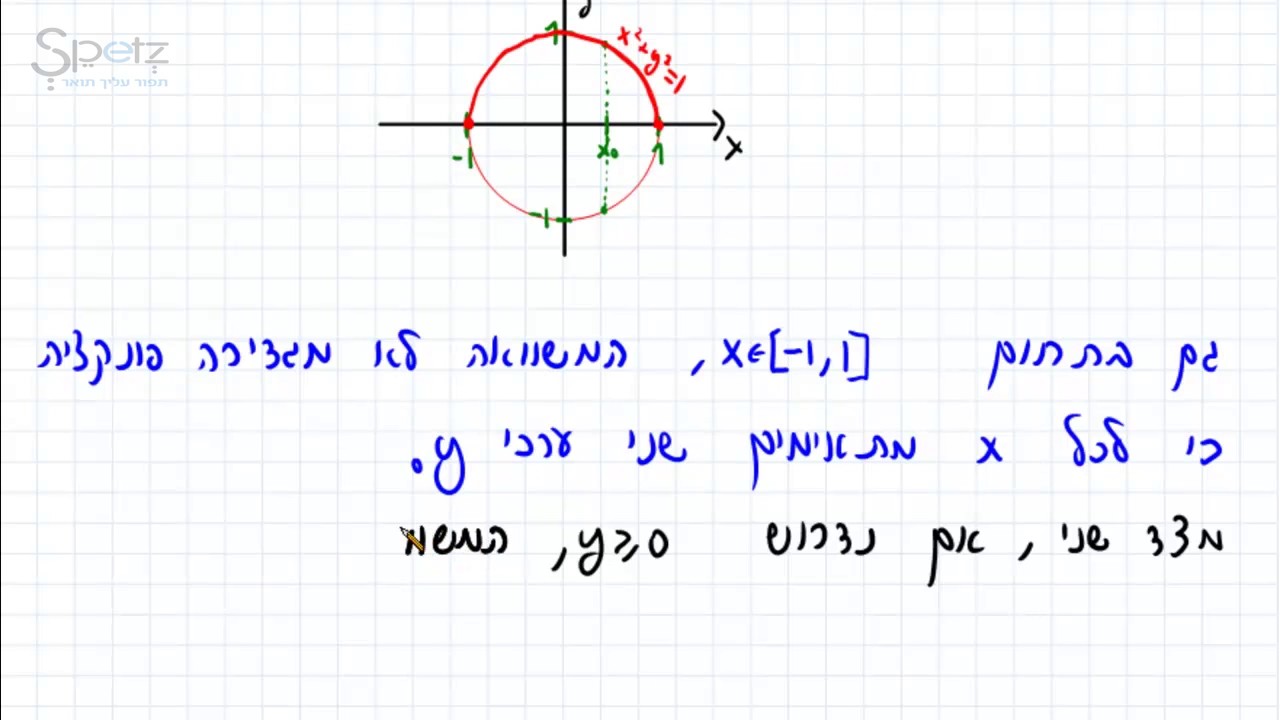 Spetz
תפור עליך תואר
y
1
x²+y²=1
-1
x₀
1
x
-1
גם בתחום x∈[-1,1], המשוואה לא מגדירה פונקציה
כי לכל x מתאימים שני ערכי y.
מצד שני, אם נדרוש y≥0, המשו